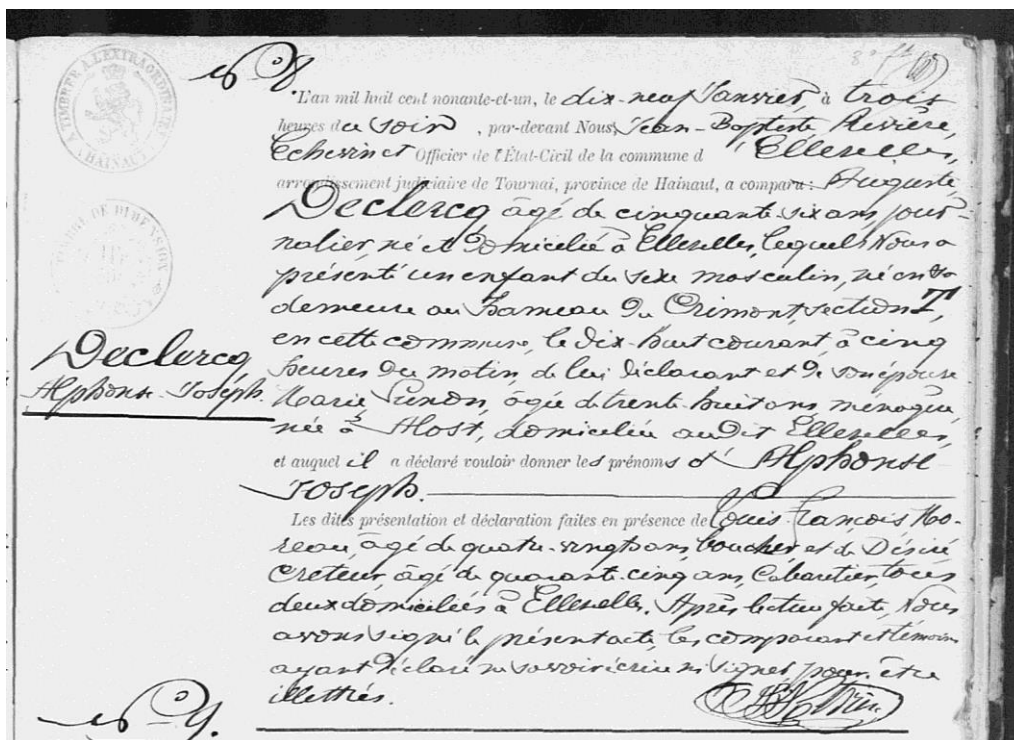 TIMBRE A L'EXTRAORDINAIRE
HAINAUT
TIMBRE DE DIMENSION
N° 8
L'an mil huit cent nonante-et-un, le dix-neuf Janvier, à trois
heures du soir, par-devant Nous, Jean-Baptiste Rivière,
Echevin et Officier de l'État-Civil de la commune d'Ellezelles,
arrondissement judiciaire de Tournai, province de Hainaut, a comparu : Auguste
Declercq, âgé de cinquante-six ans, jour-
nalier, né et domicilié à Ellezelles, lequel Nous a
présenté un enfant du sexe masculin, né en sa
demeure au hameau du Crimont, section T,
en cette commune, le dix-huit courant à cinq
heures du matin, de lui déclarant et de son épouse
Marie, âgée de trente-huit ans, ménagère
née à Alost, domiciliée audit Ellezelles,
et auquel il a déclaré vouloir donner les prénoms d'Alphonse
Joseph.
Declercq,
Alphonse-Joseph.
Les dites présentation et déclaration faites en présence de Louis François Mo-
reau, âgé de quatre-vingts ans, boucher, et de Désiré
Creteur, âgé de quarante-cinq ans, Cabaretier, tous
deux domiciliés à Ellezelles. Après lecture faite, Nous
avons signé le présent acte, les comparant et témoins
ayant déclaré ne savoir écrire ni signer, pour être
illettrés.
N° 9.